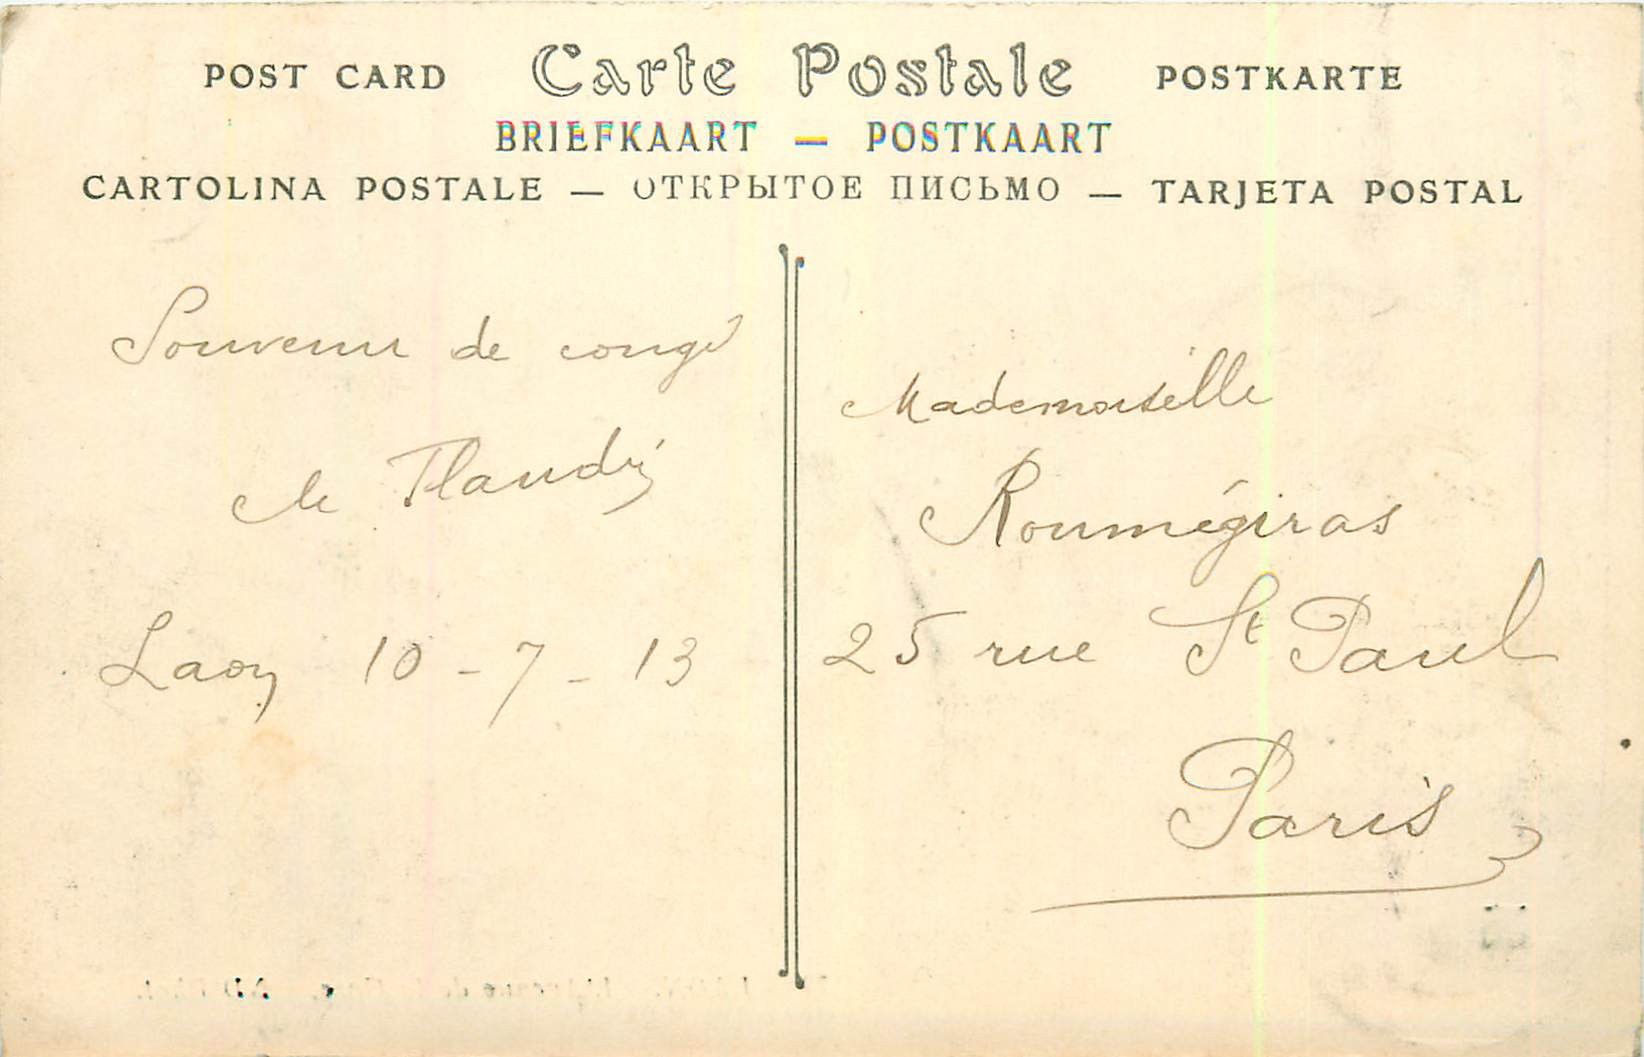 POST CARD Carte Postale POSTKARTE
BRIEFKAART — POSTKAART
CARTOLINA POSTALE — ОТКРЫТОЕ ПИСЬМО — TARJETA POSTAL
Souvenir de congé
Laon 10-7-13
Mademoiselle
Roumégiras
25 rue St Paul
Paris